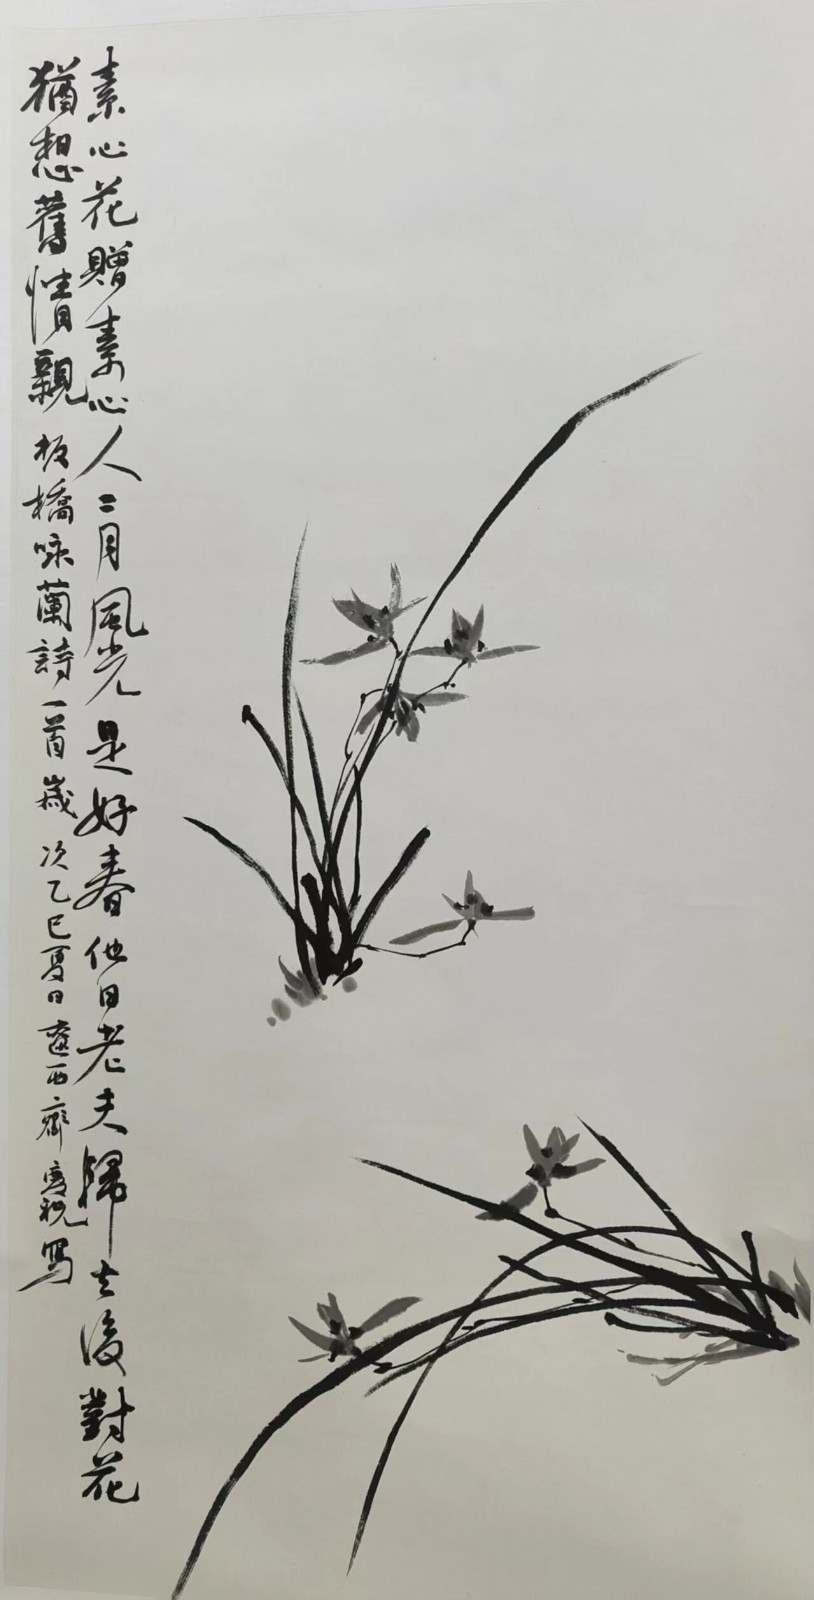 素心花贈素心人二月風光是好春他日老夫歸去後對花
猶想舊情親 板橋咏蘭詩一首歲次乙巳夏日 西齋 寫